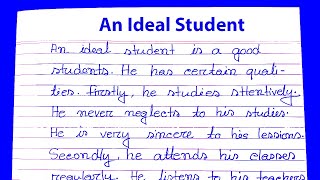 An Ideal Student
An ideal student is a good
students. He has certain quali-
ties. Firstly, he studies sttentively.
He never neglects to his studies.
He is very sincere to his lessions.
Secondly, he attends his classes
regularly. He listens to his teachers